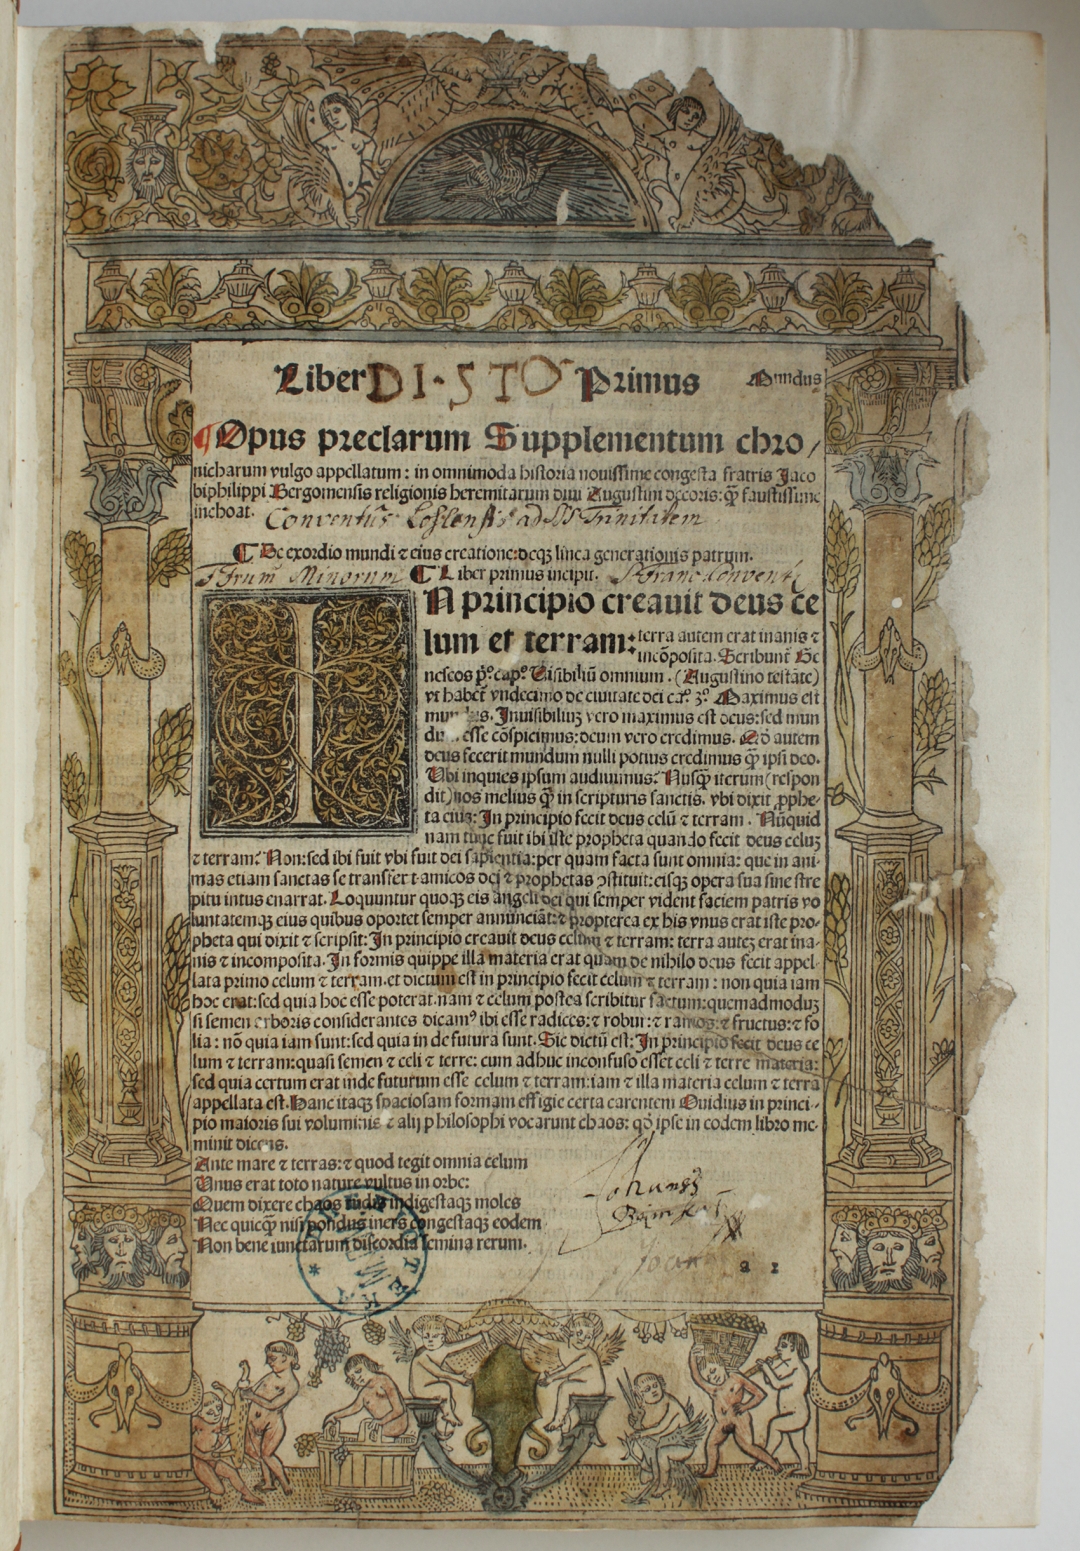 Liber DI·STO Primus Mundus
¶ Opus preclarum Supplementum chro/
nicharum vulgo appellatum: in omnimoda historia nouissime congesta fratris Jaco
biphilippi Bergomensis religionis heremitarum diui Augustini decoris: qȝ faustissime
inchoat. Conventus Coslensis ad SS Trinitatem
¶ De exordio mundi ⁊ eius creatione: deqȝ linea generationis patrum.
Frum Minorum ¶ Liber primus incipit. Conventi
IN principio creauit deus ce
lum et terram: terra autem erat inanis ⁊
incōposita. Scribunt̄ Ge
neseos p̊. cap̊. Uisibiliū omnium. (Augustino testāte)
vt habet̄ vndecimo de ciuitate dei cå. 3̊. Maximus est
Inuisibiliuȝ vero maximus est deus: sed mun
esse cōspicimus: deum vero credimus. Qd̄ autem
deus fecerit mundum nulli potius credimus qȝ ipsi deo.
Ubi inquies ipsum audiuimus? Nusqȝ iterum (respon
dit) nos melius qȝ in scripturis sanctis. vbi dixit ꝓphe-
ta eiuȝ: In principio fecit deus celū ⁊ terram. Nūquid
nam tunc fuit ibi iste propheta quando fecit deus celuȝ
⁊ terram? Non: sed ibi fuit vbi fuit dei sapientia: per quam facta sunt omnia: que in ani-
mas etiam sanctas se transfert: amicos dei ⁊ prophetas ꝯstituit: eisqȝ opera sua sine stre
pitu intus enarrat. Loquuntur quoqȝ eis angeli dei qui semper vident faciem patris vo
luntatemqȝ eius quibus oportet semper annunciāt: ⁊ propterea ex his vnus erat iste pro-
pheta qui dixit ⁊ scripsit: In principio creauit deus celum ⁊ terram: terra auteȝ erat ina-
nis ⁊ incomposita. In formis quippe illa materia erat quam de nihilo deus fecit appel-
lata primo celum ⁊ terram. et dictum est in principio fecit celum ⁊ terram: non quia iam
hoc erat: sed quia hoc esse poterat. nam ⁊ celum postea scribitur factum: quemadmoduȝ
si semen arboris considerantes dicamꝰ ibi esse radices: ⁊ robur: ⁊ ramos: ⁊ fructus: ⁊ fo
lia: nō quia iam sunt: sed quia inde futura sunt. Sic dictū est: In principio fecit deus ce
lum ⁊ terram: quasi semen ⁊ celi ⁊ terre: cum adhuc in confuso esset celi ⁊ terre materia:
sed quia certum erat inde futurum esse celum ⁊ terram: iam ⁊ illa materia celum ⁊ terra
appellata est. Hanc itaqȝ spaciosam formam effigie certa carentem Ouidius in princi-
pio maioris sui voluminis ⁊ alij philosophi vocarunt chaos: qd̄ ipse in eodem libro me-
minit dicens.
Ante mare ⁊ terras: ⁊ quod tegit omnia celum
Unus erat toto nature vultus in orbe:
Quem dixere chaos rudis indigestaqȝ moles
Nec quicqȝ nisi pondus iners congestaqȝ eodem
Non bene iunctarum discordia semina rerum.
Johannes
a 1